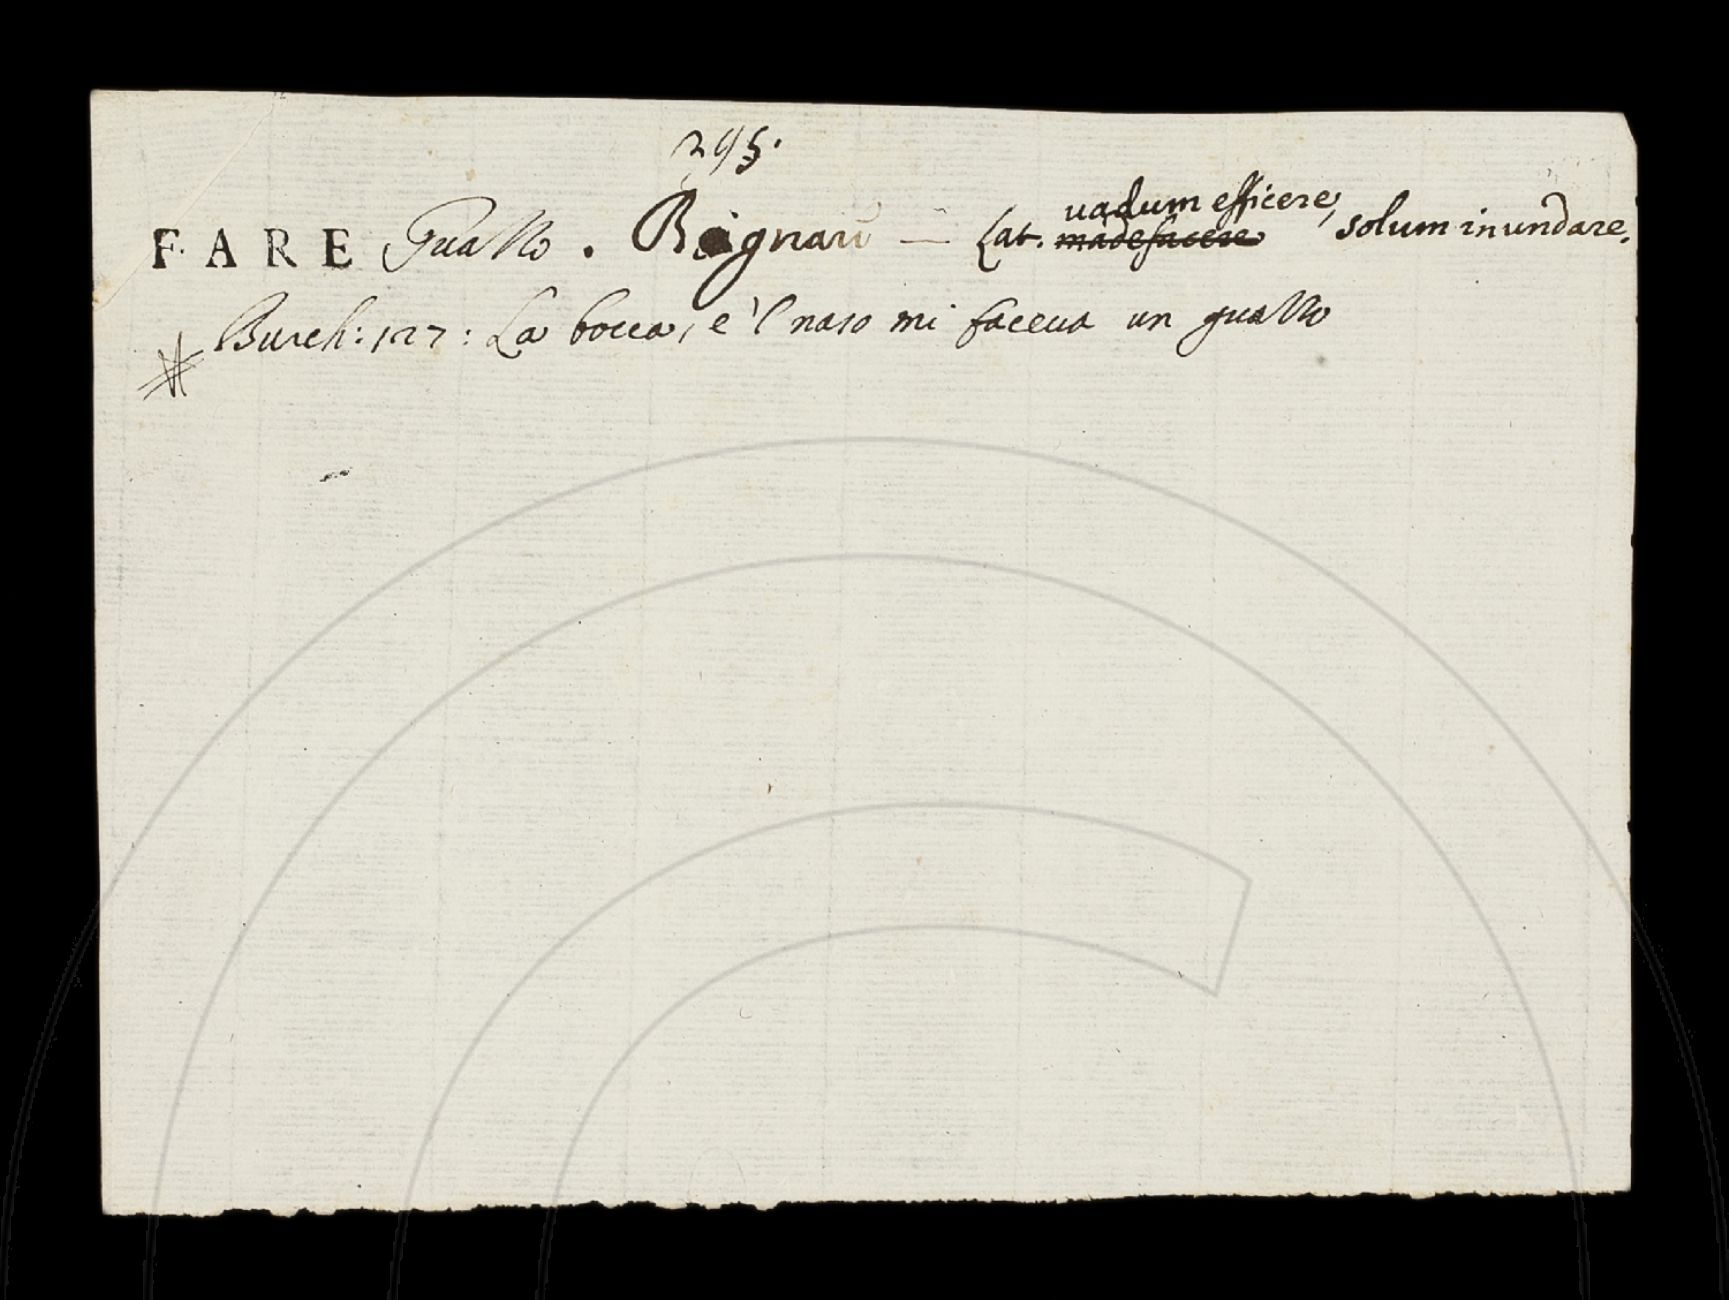 295.
FARE guazzo. Bagnare — Lat. ~~madefacere~~ uadum efficere, solum inundare.
Burch: 127: La bocca, e 'l naso mi faceua un guazzo